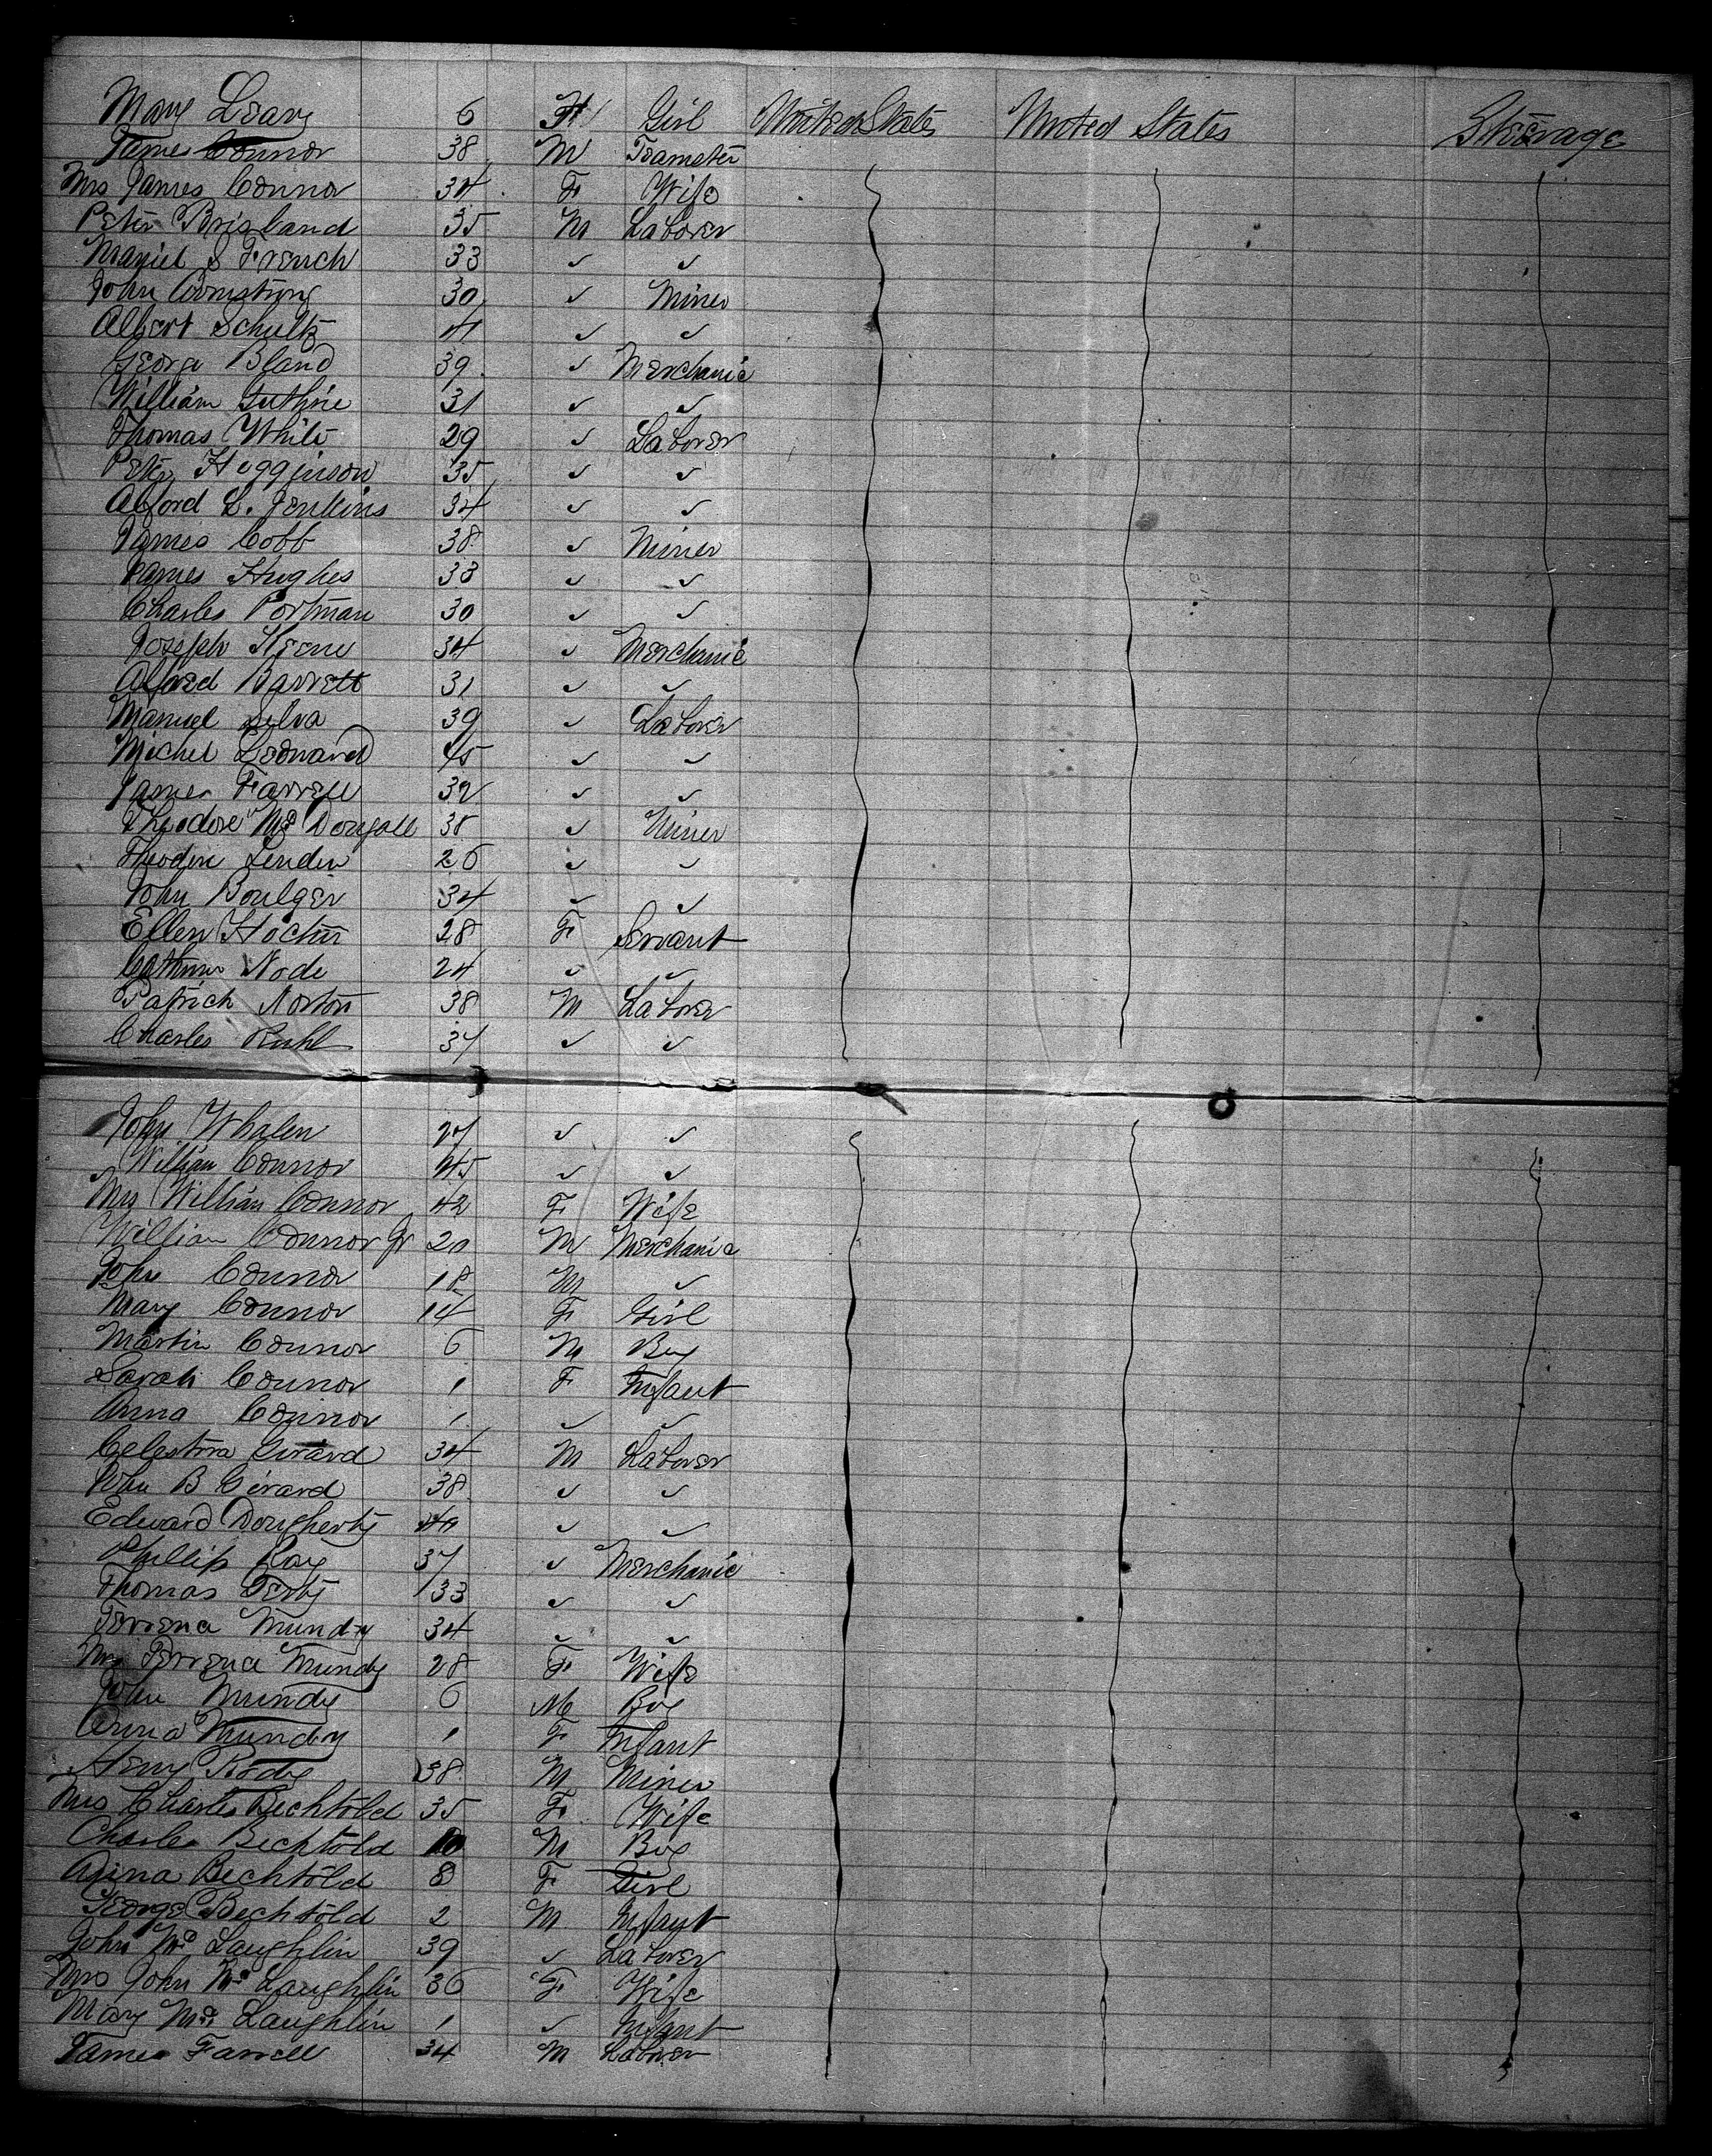 Mary Leary 6 F Girl United States United States Steerage
James Connor 38 M Teamster
Mrs James Connor 34 F Wife
Peter Brisland 35 M Laborer
Maniel S French 33 ✓ ✓
John Armstrong 30 ✓ Miner
Albert Schultz 41 ✓ ✓
George Bland 39 ✓ Merchanic
William Guthrie 31 ✓ ✓
Thomas White 29 ✓ Laborer
Peter Higginson 35 ✓ ✓
Alford L. Jenkins 34 ✓ ✓
James Cobb 38 ✓ Miner
James Hughes 33 ✓ ✓
Charles Portman 30 ✓ ✓
Joseph Keene 34 ✓ Merchanic
Alfred Barrett 31 ✓ ✓
Manuel Silva 39 ✓ Laborer
Michel Leonard 45 ✓ ✓
James Farrell 32 ✓ ✓
Theodore Mc Dougall 38 ✓ Miner
Theodore Linden 26 ✓ ✓
John Boulger 34 ✓ ✓
Ellen Hoctor 28 F Servant
Node 24 ✓ ✓
Patrick Norton 38 M Laborer
Charles Ruhl 37 ✓ ✓
John Whalen 27 ✓ ✓
William Connor 45 ✓ ✓
Mrs William Connor 42 F Wife
William Connor Jr 20 M Merchanic
John Connor 18 M ✓
Mary Connor 14 F Girl
Martin Connor 6 M Boy
Sarah Connor 1 F Infant
Anna Connor 1 ✓ ✓
Celestora Girard 34 M Laborer
John B Girard 38 ✓ ✓
Edward Dougherty 40 ✓ ✓
Phillip Ray 37 ✓ Merchanic
Thomas Derby 33 ✓ ✓
Terrena Mundy 34 ✓ ✓
Mrs Terrena Mundy 28 F Wife
John Mundy 6 M Boy
Anna Mundy 1 F Infant
Henry Rody 38 M Miner
Mrs Charles Bechtold 35 F Wife
Charles Bechtold 10 M Boy
Anna Bechtold 8 F Girl
George Bechtold 2 M Infant
John Mc Laughlin 39 ✓ Laborer
Mrs John Mc Laughlin 36 F Wife
Mary Mc Laughlin 1 ✓ Infant
James Farrell 34 M Laborer